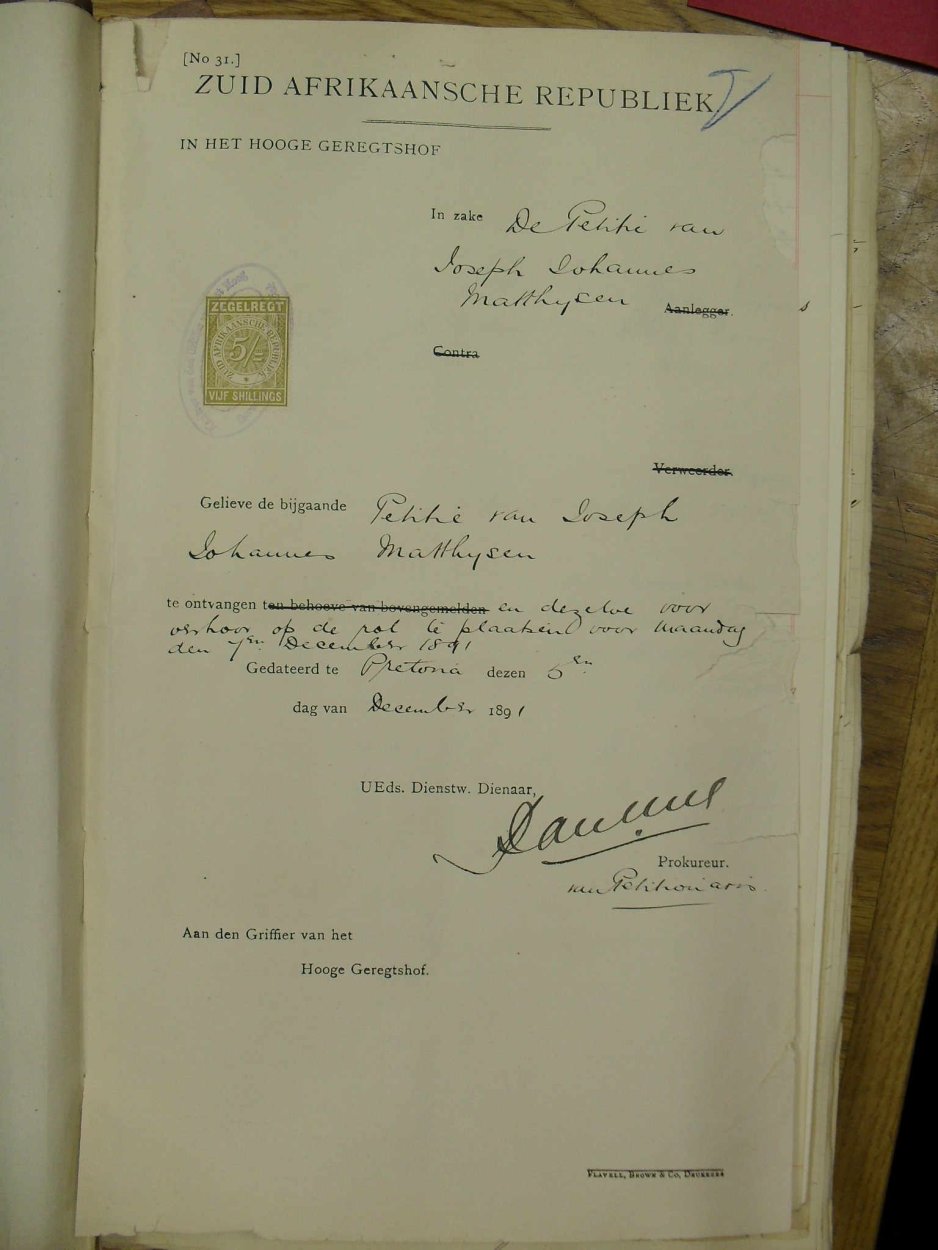 [No 31.]
ZUID AFRIKAANSCHE REPUBLIEK.
IN HET HOOGE GEREGTSHOF
In zake De Petitie van
Joseph Johannes
Matthysen Aanlegger.
Contra
ZEGELREGT
ZUID AFRIKAANSCHE REPUBLIEK
5/=
VIJF SHILLINGS
Verweerder.
Gelieve de bijgaande Petitie van Joseph
Johannes Matthysen
te ontvangen ten behoeve van bovengemelden en dezelve voor
verhoor op de rol te plaatsen voor Maandag
den 7en December 1891
Gedateerd te Pretoria dezen 5en
dag van December 1891
UEds. Dienstw. Dienaar,
Prokureur.
van Petitionaris.
Aan den Griffier van het
Hooge Geregtshof.
FLAVELL, BROWN & CO, DRUKKERS